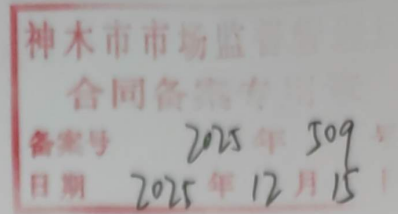 神木市市场监督管理
合同备案专用章
备案号 2025年509号
日期 2025年12月15日